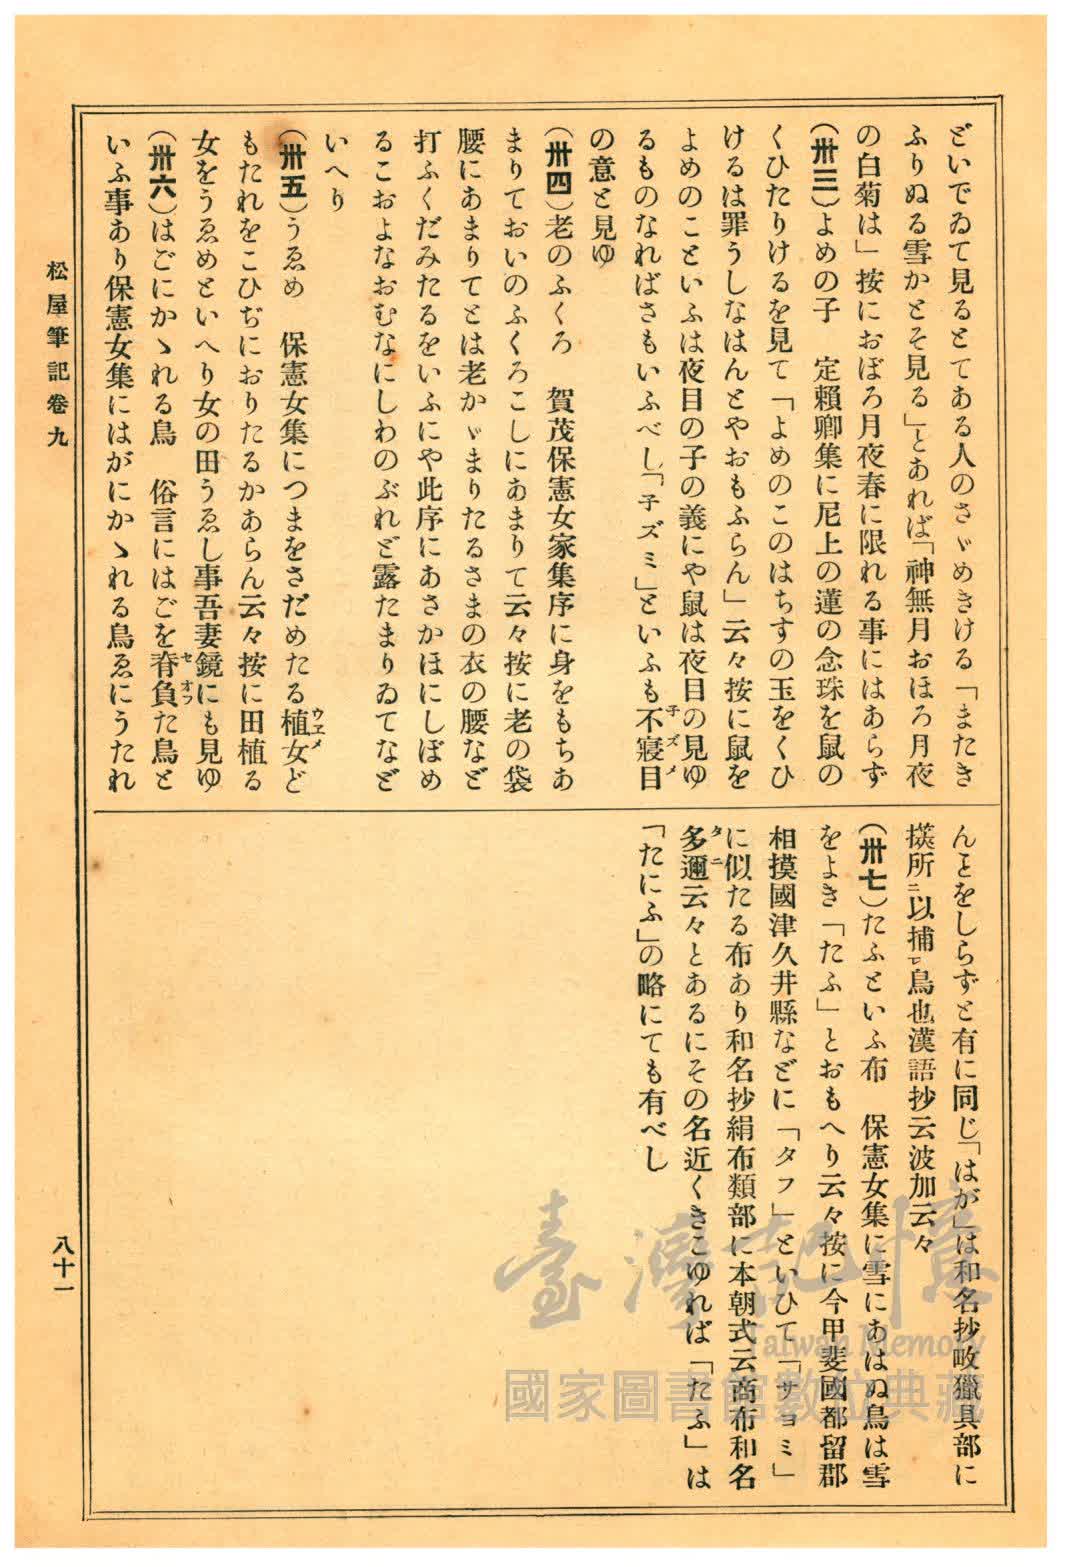 どいでゐて見るとてある人のさゞめきける「またき
ふりぬる雪かとそ見る」とあれば「神無月おほろ月夜
の白菊は」按におぼろ月夜春に限れる事にはあらず
(卅三)よめの子　定頼卿集に尼上の蓮の念珠を鼠の
くひたりけるを見て「よめのこのはちすの玉をくひ
けるは罪うしなはんとやおもふらん」云々按に鼠を
よめのこといふは夜目の子の義にや鼠は夜目の見ゆ
るものなればさもいふべし「子ズミ」といふも不寢目
子ズメ
の意と見ゆ
(卅四)老のふくろ　賀茂保憲女家集序に身をもちあ
まりておいのふくろこしにあまりて云々按に老の袋
腰にあまりてとは老かゞまりたるさまの衣の腰など
打ふくだみたるをいふにや此序にあさかほにしぼめ
るこおよなおむなにしわのぶれど露たまりゐてなど
いへり
(卅五)うゑめ　保憲女集につまをさだめたる植女ど
ウヱメ
もたれをこひぢにおりたるかあらん云々按に田植る
女をうゑめといへり女の田うゑし事吾妻鏡にも見ゆ
(卅六)はごにかゝれる鳥　俗言にはごを脊負た鳥と
セオフ
いふ事あり保憲女集にはがにかゝれる鳥ゑにうたれ
んとをしらずと有に同じ「はが」は和名抄畋獵具部に
㩎所ニ以捕ヒ鳥也漢語抄云波加云々
(卅七)たふといふ布　保憲女集に雪にあはぬ鳥は雪
をよき「たふ」とおもへり云々按に今甲斐國都留郡
相摸國津久井縣などに「タフ」といひて「サヨミ」
に似たる布あり和名抄絹布類部に本朝式云商布和名
多邇云々とあるにその名近くきこゆれば「たふ」は
タニ
「たにふ」の略にても有べし
松屋筆記卷九
八十一
臺灣記憶
Taiwan Memory
國家圖書館數位典藏